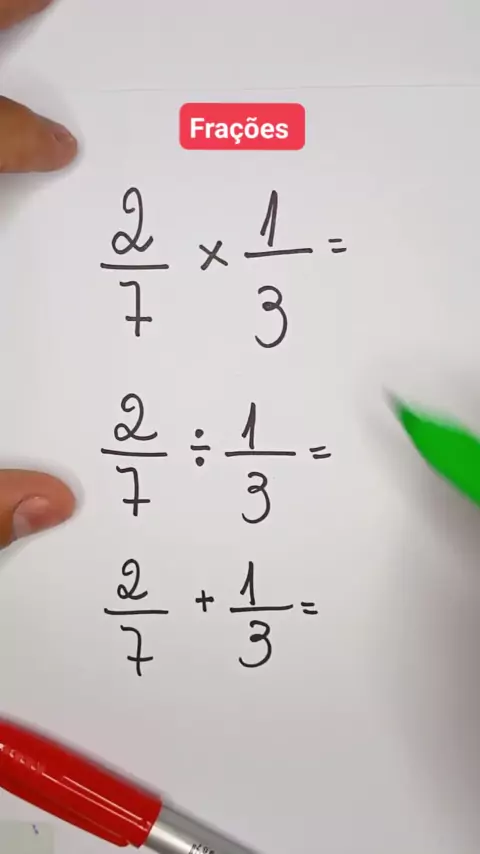 Frações
2/7 × 1/3 =
2/7 ÷ 1/3 =
2/7 + 1/3 =